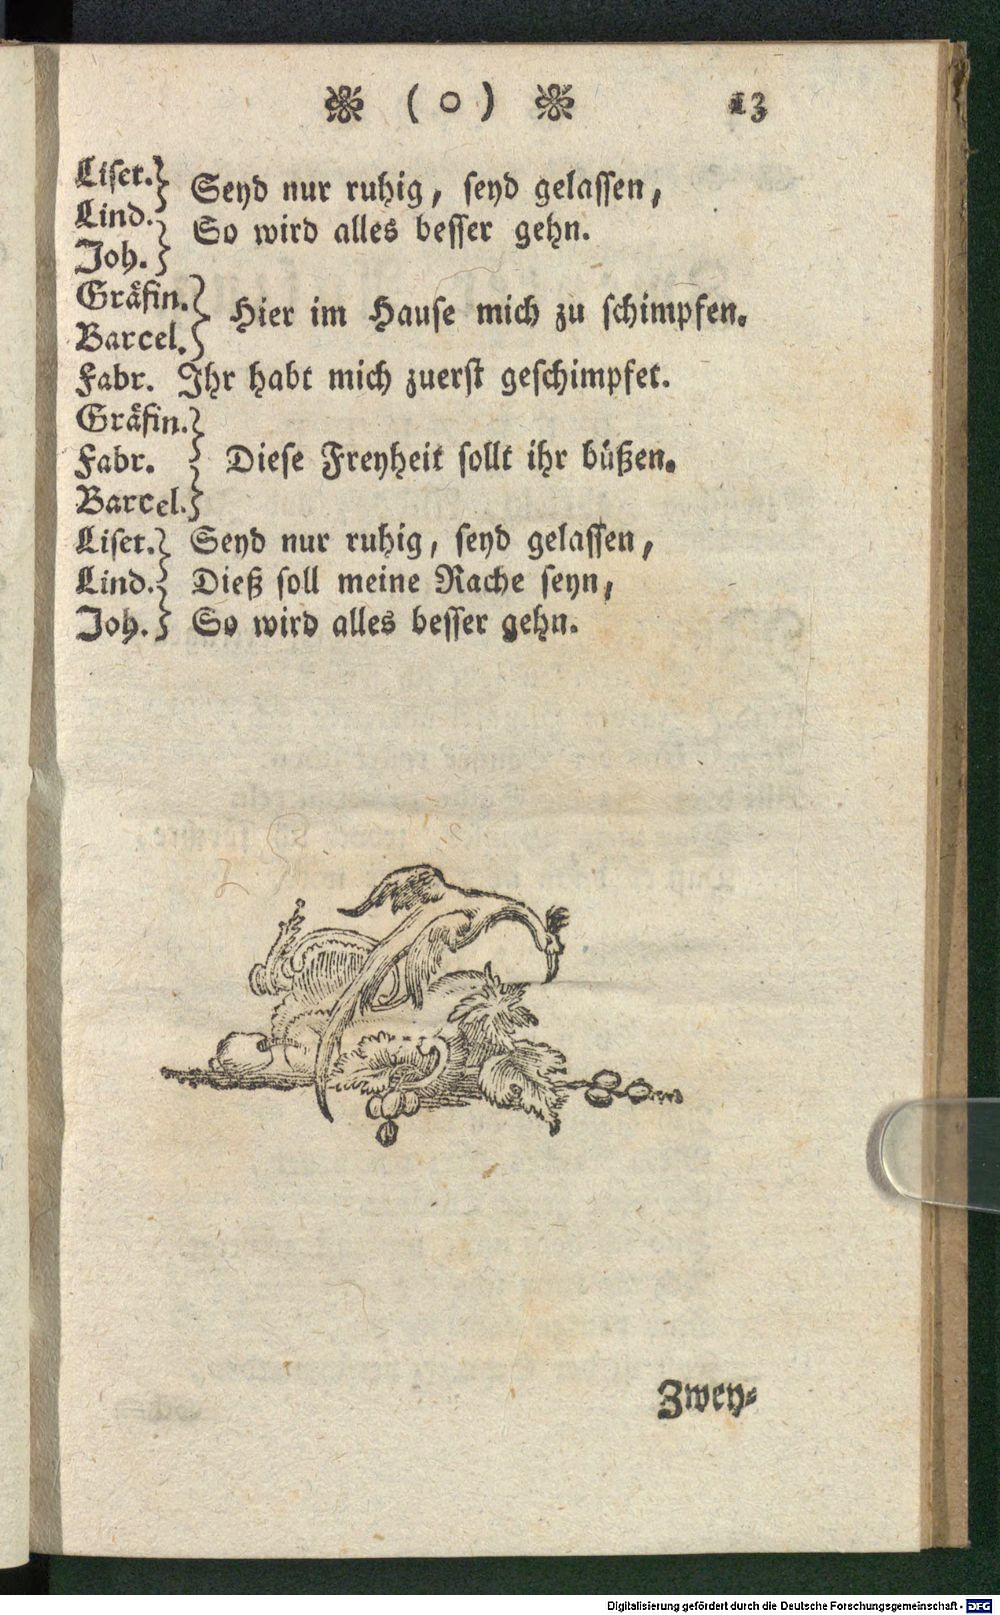 ❀ ( o ) ❀ 13
Liset.} Seyd nur ruhig, seyd gelassen,
Lind.} So wird alles besser gehn.
Joh.}
Gräfin.} Hier im Hause mich zu schimpfen.
Barcel.}
Fabr. Ihr habt mich zuerst geschimpfet.
Gräfin.}
Fabr. } Diese Freyheit sollt ihr büßen.
Barcel.}
Liset.} Seyd nur ruhig, seyd gelassen,
Lind.} Dieß soll meine Rache seyn,
Joh.} So wird alles besser gehn.
Zwey-
Digitalisierung gefördert durch die Deutsche Forschungsgemeinschaft - DFG